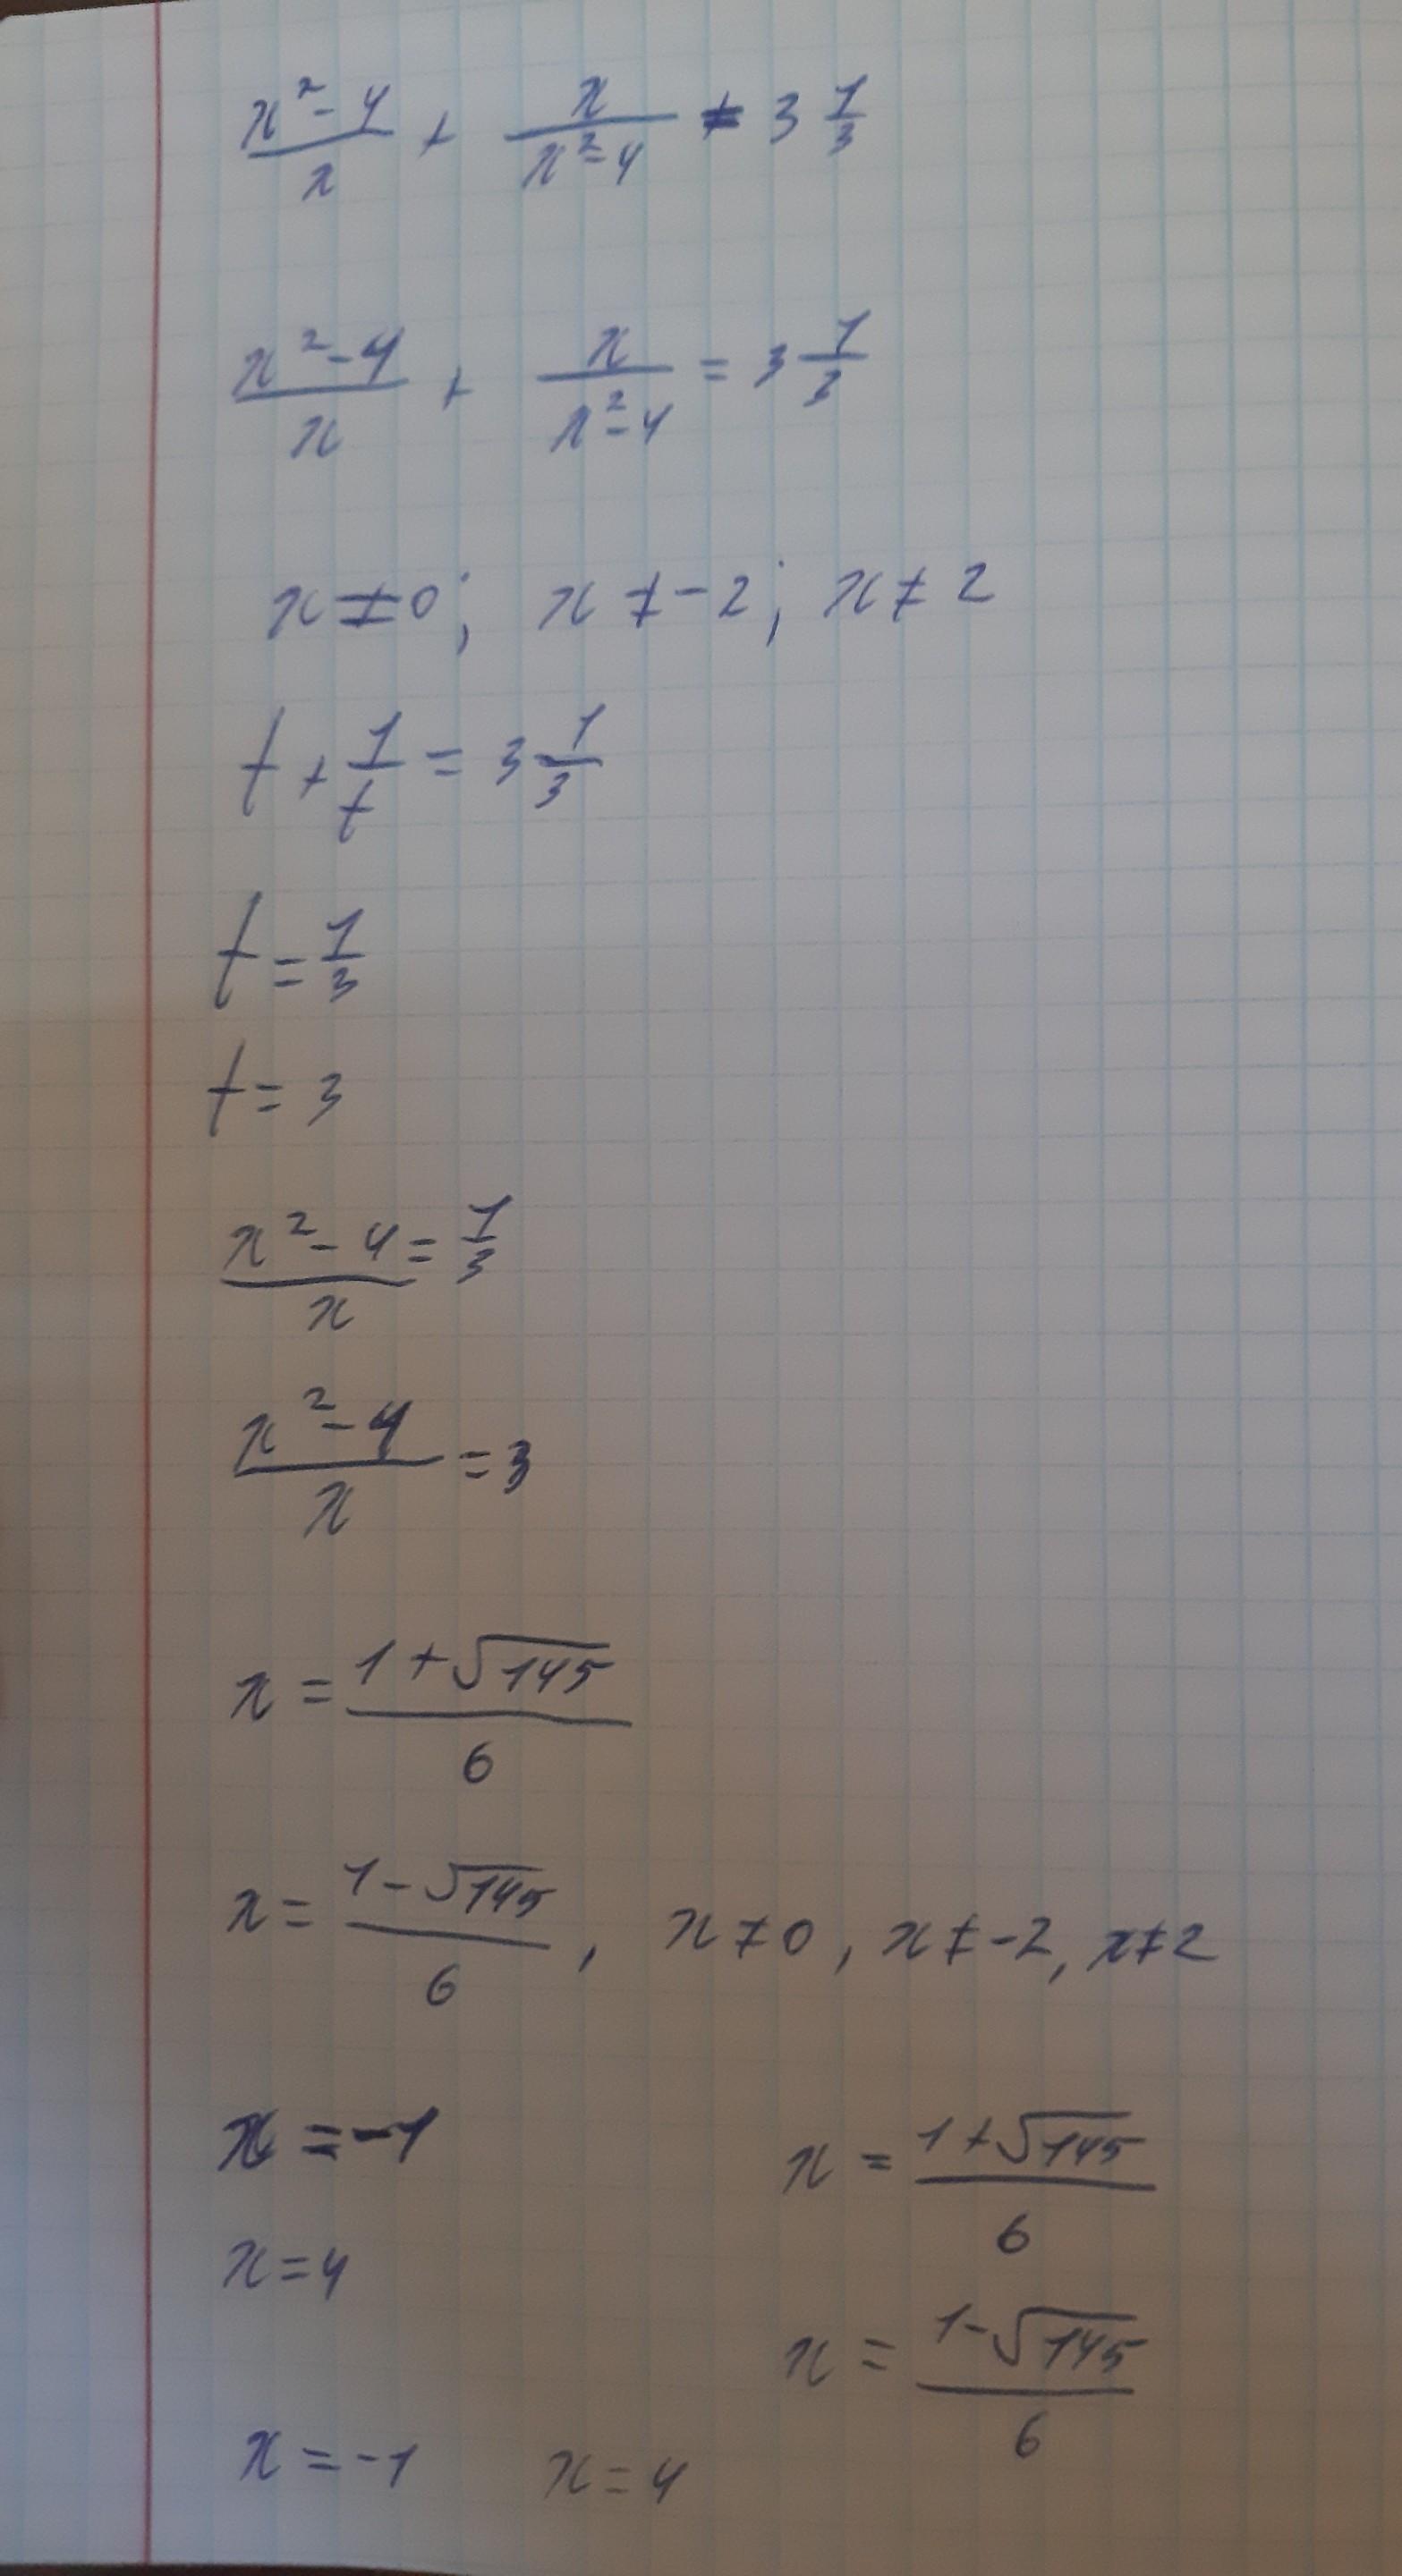 (x²-4)/x + x/(x²-4) = 3 1/3
(x²-4)/x + x/(x²-4) = 3 1/3
x≠0; x≠-2; x≠2
t + 1/t = 3 1/3
t = 1/3
t = 3
(x²-4)/x = 1/3
(x²-4)/x = 3
x = (1+√145)/6
x = (1-√145)/6, x≠0, x≠-2, x≠2
x = -1 x = (1+√145)/6
x = 4 x = (1-√145)/6
x = -1 x = 4